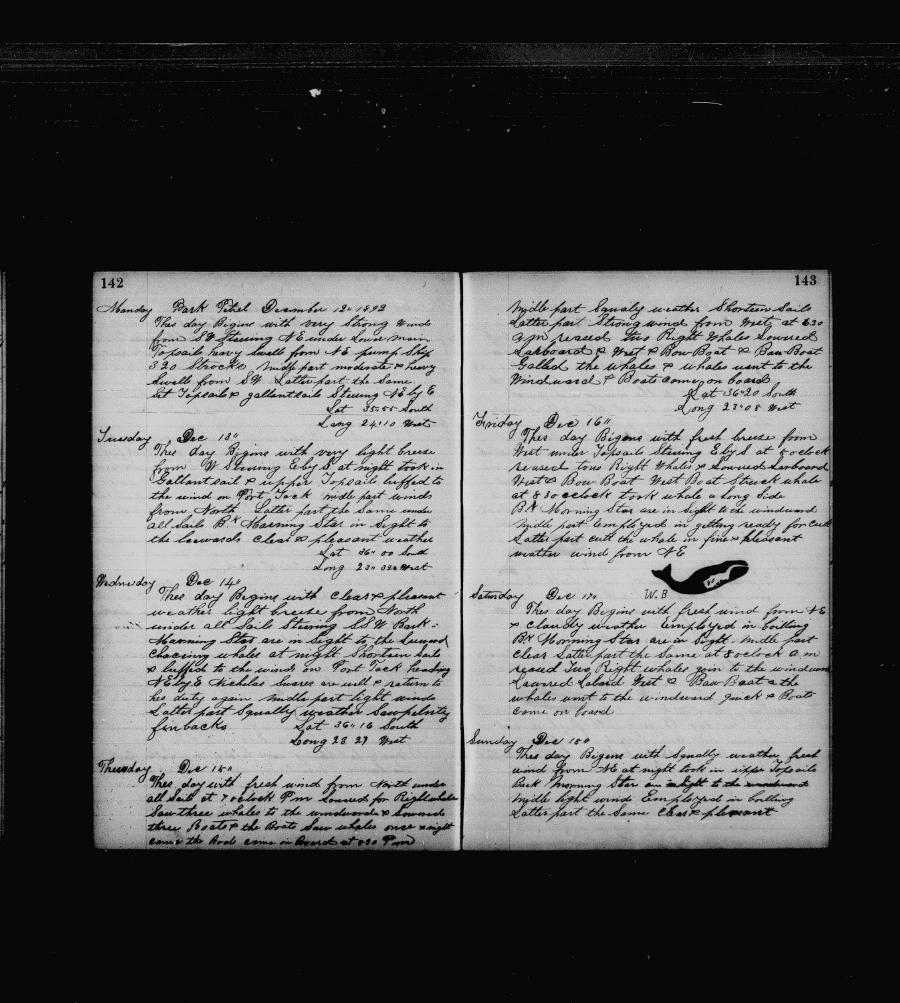 142
Monday Bark Petrel December 12" 1892
This day Begins with very Strong wind
from SW Steering NE under Lower main
Topsails heavy Swell from NE pump Ship
320 Strocks midle part moderate & heavy
Swells from SW Latter part the Same
Set Topsails & gallantsails Steering NE by E
Lat 35"55 South
Long 24"10 West
Tuesday Dec 13"
Thes day Bigins with very light breese
from W Steering E by S at night took in
Gallantsail & upper Topsail luffed to
the wind on Port Tack midle part winds
from North Latter part the Same under
all Sails Bk Morning Star in Sight to
the leewards clear & pleasant weather
Lat 36" 00 South
Long 23" West
Wednesday Dec 14"
Thes day Begins with clear & pleasant
weather light breese from North
under all Sails Steering SSW Bark
Morning Star are in Sight to the Leeward
Chacing whales at night Shorteen Sails
& luffed to the winds on Port Tack heading
NE by E Nicholas Suares are well & return to
his duty again midle part light winds
Latter part Squally weather Saw
finbacks Lat 36"16 South
Long 23 27 West
Thursday Dec 15"
Thes day with fresh wind from North under
all Sails at 7 oclock Pm Loured for Right whale
Saw three whales to the windwards & Loured
three Boats & the Boats Saw whales once & night
came the Boats come on Board at 830 Pm
143
Midle part Squaly weather Shorteen Sails
Latter part Strong wind from West at 630
a m reased two Right Whales Loured
Larboard & West & Bow Boat & Bow Boat
Galled the whales & whales went to the
Windward & Boats come on board
Lat 36"20 South
Long 23"08 West
Friday Dec 16"
Thes day Begens with fresh breese from
West under Topsails Steering E by S at 5 oclock
reased two Right Whales & Loured Larboard
West & Bow Boat West Boat Struck whale
at 830 oclock took whale a long Side
BK Morning Star are in Sight to the windward
midle part Employed in getting ready for cutt
Latter part cutt the whale in fine & pleasant
weather wind from NE
W.B
Saturday Dec 17"
Thes day Begins with fresh wind from NE
& cloudy weather Employed in boilling
BK Morning Star are in Sight midle part
clear Latter part the Same at 5 oclock a m
reased Two Right whales goin to the windward
Lowred Labord West & Bow Boat & the
whales went to the windward quick & Boats
come on board
Sunday Dec 18"
Thes day Begins with Squally weather fresh
wind from NE at night took in Topsails
Bark Morning Star are in Sight to the windward
midle light wind Employed in boilling
Latter part the Same clear & pleasant